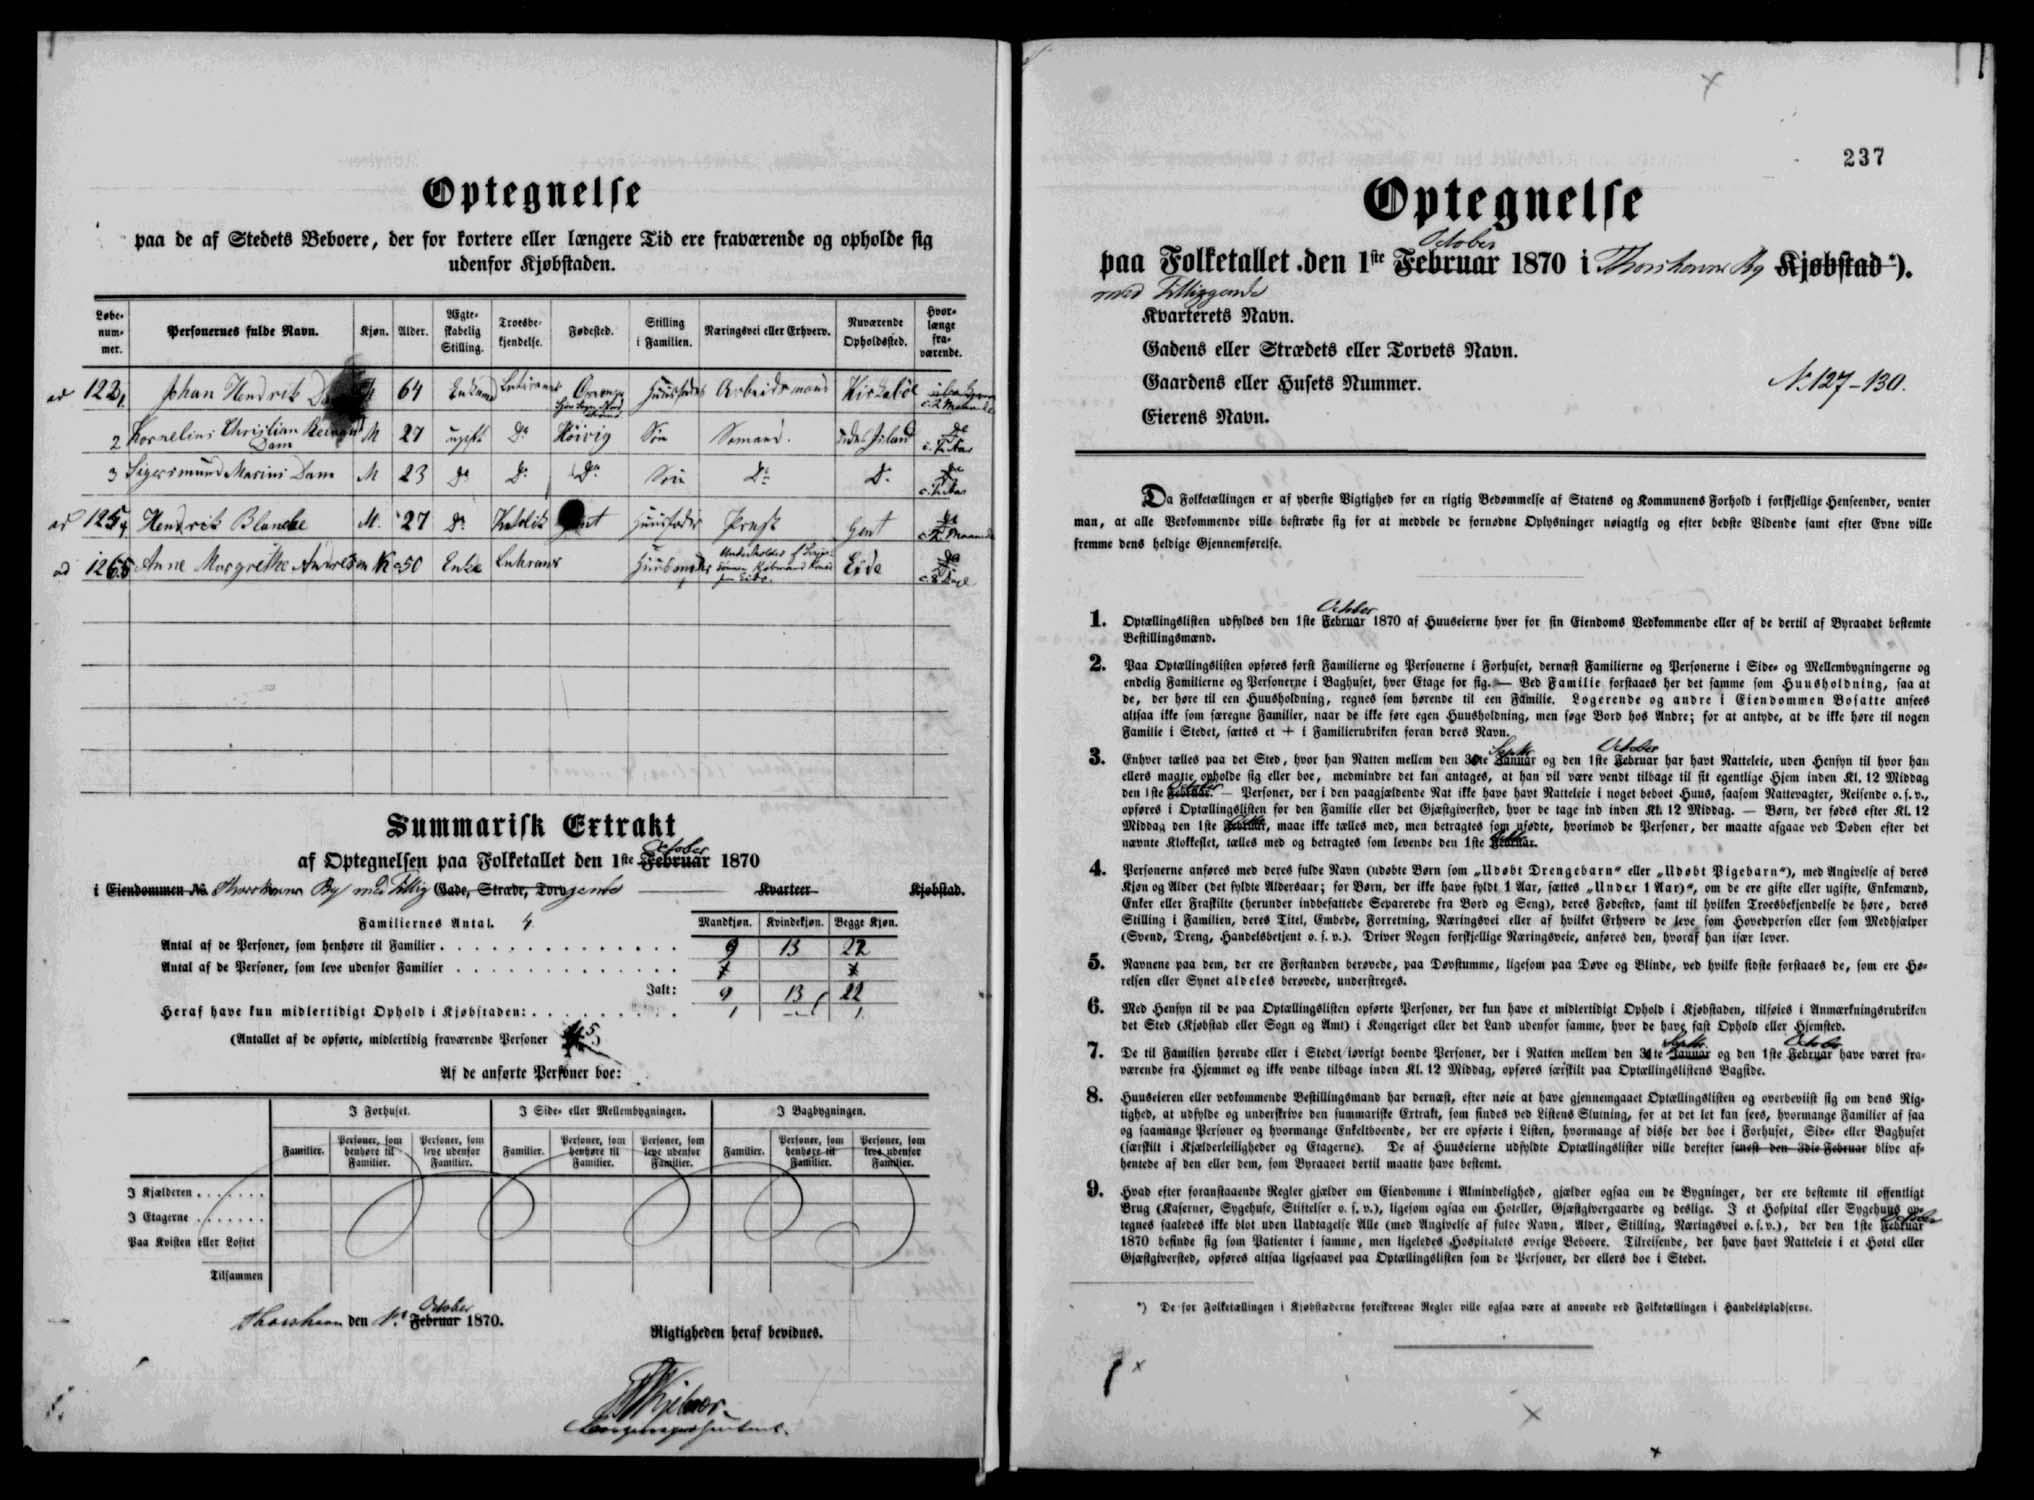 Optegnelse
paa de af Stedets Beboere, der for kortere eller længere Tid ere fraværende og opholde sig
udenfor Kjøbstaden.
Løbe-nummer. Personernes fulde Navn. Kjøn. Alder. Ægteskabelig Stilling. Troesbekjendelse. Fødested. Stilling i Familien. Næringsvei eller Erhverv. Nuværende Opholdssted. Hvorlænge fraværende.
ad 123 1 Johan Hendrik 64 Enkemand Lutheraner Huusfader Arbeidsmand Kirkebøe
2 Kornelius Christian Dam M 27 ugift Do Høivig Søn Sømand.
3 Sigersmund Marius Dam M 23 Do Do Do Søn Do Do
ad 125 4 Hendrik Blancke M. 27 Do Katolik Gent Huusfader Præst Gent
ad 126 5 Anne Margrethe K 50 Enke Lutheraner Huusmoder Eide
Summarisk Extrakt
October
af Optegnelsen paa Folketallet den 1ste Februar 1870
i Eiendommen No. Thorshavns By med Tillig Gade, Stræde, Torv gende Kvarteer Kjøbstad.
Familiernes Antal. 4.
Mandkjøn. Kvindekjøn. Begge Kjøn.
Antal af de Personer, som henhøre til Familier 9 13 22
Antal af de Personer, som leve udenfor Familier
Ialt: 9 13 22
Heraf have kun midlertidigt Ophold i Kjøbstaden: 1 - 1
(Antallet af de opførte, midlertidig fraværende Personer 5
Af de anførte Personer boe:
I Forhuset. I Side- eller Mellembygningen. I Bagbygningen.
Familier. Personer, som henhøre til Familier. Personer, som leve udenfor Familier. Familier. Personer, som henhøre til Familier. Personer, som leve udenfor Familier. Familier. Personer, som henhøre til Familier. Personer, som leve udenfor Familier.
I Kjælderen
I Etagerne
Paa Kvisten eller Loftet
Tilsammen
October
Thorshavn den 1st Februar 1870.
Rigtigheden heraf bevidnes.
237
Optegnelse
October
paa Folketallet den 1ste Februar 1870 i Thorshavns By Kjøbstad*).
med Tilliggende
Kvarterets Navn.
Gadens eller Strædets eller Torvets Navn.
Gaardens eller Husets Nummer. No 127-130.
Eierens Navn.
Da Folketællingen er af yderste Vigtighed for en rigtig Bedømmelse af Statens og Kommunens Forhold i forskjellige Henseender, venter
man, at alle Vedkommende ville bestræbe sig for at meddele de fornødne Oplysninger nøiagtig og efter bedste Vidende samt efter Evne ville
fremme dens heldige Gjennemførelse.
October
1. Optællingslisten udfyldes den 1ste Februar 1870 af Huuseierne hver for sin Eiendoms Vedkommende eller af de dertil af Byraadet bestemte
Bestillingsmænd.
2. Paa Optællingslisten opføres først Familierne og Personerne i Forhuset, dernæst Familierne og Personerne i Side- og Mellembygningerne og
endelig Familierne og Personerne i Baghuset, hver Etage for sig. — Ved Familie forstaaes her det samme som Huusholdning, saa at
de, der høre til een Huusholdning, regnes som hørende til een Familie. Logerende og andre i Eiendommen Bosatte ansees
altsaa ikke som særegne Familier, naar de ikke føre egen Huusholdning, men søge Bord hos Andre; for at antyde, at de ikke høre til nogen
Familie i Stedet, sættes et + i Familierubriken foran deres Navn.
Septbr October
3. Enhver tælles paa det Sted, hvor han Natten mellem den 30te Januar og den 1ste Februar har havt Natteleie, uden Hensyn til hvor han
ellers maatte opholde sig eller boe, medmindre det kan antages, at han vil være vendt tilbage til sit egentlige Hjem inden Kl. 12 Middag
den 1ste Februar. October — Personer, der i den paagjældende Nat ikke have havt Natteleie i noget beboet Huus, saasom Nattevagter, Reisende o. s. v.,
opføres i Optællingslisten for den Familie eller det Gjæstgiversted, hvor de tage ind inden Kl. 12 Middag. — Børn, der fødes efter Kl. 12
Middag den 1ste Februar, maae ikke tælles med, men betragtes som ufødte, hvorimod de Personer, der maatte afgaae ved Døden efter det
nævnte Klokkeslet, tælles med og betragtes som levende den 1ste Februar.
4. Personerne anføres med deres fulde Navn (udøbte Børn som „Udøbt Drengebarn“ eller „Udøbt Pigebarn“), med Angivelse af deres
Kjøn og Alder (det fyldte Aldersaar; for Børn, der ikke have fyldt 1 Aar, sættes „Under 1 Aar)“, om de ere gifte eller ugifte, Enkemænd,
Enker eller Fraskilte (herunder indbefattede Separerede fra Bord og Seng), deres Fødested, samt til hvilken Troesbekjendelse de høre, deres
Stilling i Familien, deres Titel, Embede, Forretning, Næringsvei eller af hvilket Erhverv de leve som Hovedperson eller som Medhjælper
(Svend, Dreng, Handelsbetjent o. s. v.). Driver Nogen forskjellige Næringsveie, anføres den, hvoraf han især lever.
5. Navnene paa dem, der ere Forstanden berøvede, paa Døvstumme, ligesom paa Døve og Blinde, ved hvilke sidste forstaaes de, som ere Hø-
relsen eller Synet aldeles berøvede, understreges.
6. Med Hensyn til de paa Optællingslisten opførte Personer, der kun have et midlertidigt Ophold i Kjøbstaden, tilføies i Anmærkningsrubriken
det Sted (Kjøbstad eller Sogn og Amt) i Kongeriget eller det Land udenfor samme, hvor de have fast Ophold eller Hjemsted.
Septbr. October
7. De til Familien hørende eller i Stedet iøvrigt boende Personer, der i Natten mellem den 31te Januar og den 1ste Februar have været fra-
værende fra Hjemmet og ikke vende tilbage inden Kl. 12 Middag, opføres særskilt paa Optællingslistens Bagside.
8. Huuseieren eller vedkommende Bestillingsmand har dernæst, efter nøie at have gjennemgaaet Optællingslisten og overbeviist sig om dens Rig-
tighed, at udfylde og underskrive den summariske Extrakt, som findes ved Listens Slutning, for at det let kan sees, hvormange Familier af saa
og saamange Personer og hvormange Enkeltboende, der ere opførte i Listen, hvormange af disse der boe i Forhuset, Side- eller Baghuset
(særskilt i Kjælderleiligheder og Etagerne). De af Huuseierne udfyldte Optællingslister ville derefter senest den 3die Februar blive af-
hentede af den eller dem, som Byraadet dertil maatte have bestemt.
9. Hvad efter foranstaaende Regler gjælder om Eiendomme i Almindelighed, gjælder ogsaa om de Bygninger, der ere bestemte til offentligt
Brug (Kaserner, Sygehuse, Stiftelser o. s. v.), ligesom ogsaa om Hoteller, Gjæstgivergaarde og deslige. I et Hospital eller Sygehuus op-
tegnes saaledes ikke blot uden Undtagelse Alle (med Angivelse af fulde Navn, Alder, Stilling, Næringsvei o. s. v.), der den 1ste Februar October
1870 befinde sig som Patienter i samme, men ligeledes Hospitalets øvrige Beboere. Tilreisende, der have havt Natteleie i et Hotel eller
Gjæstgiversted, opføres altsaa ligesaavel paa Optællingslisten som de Personer, der ellers boe i Stedet.
*) De for Folketællingen i Kjøbstæderne foreskrevne Regler ville ogsaa være at anvende ved Folketællingen i Handelspladserne.